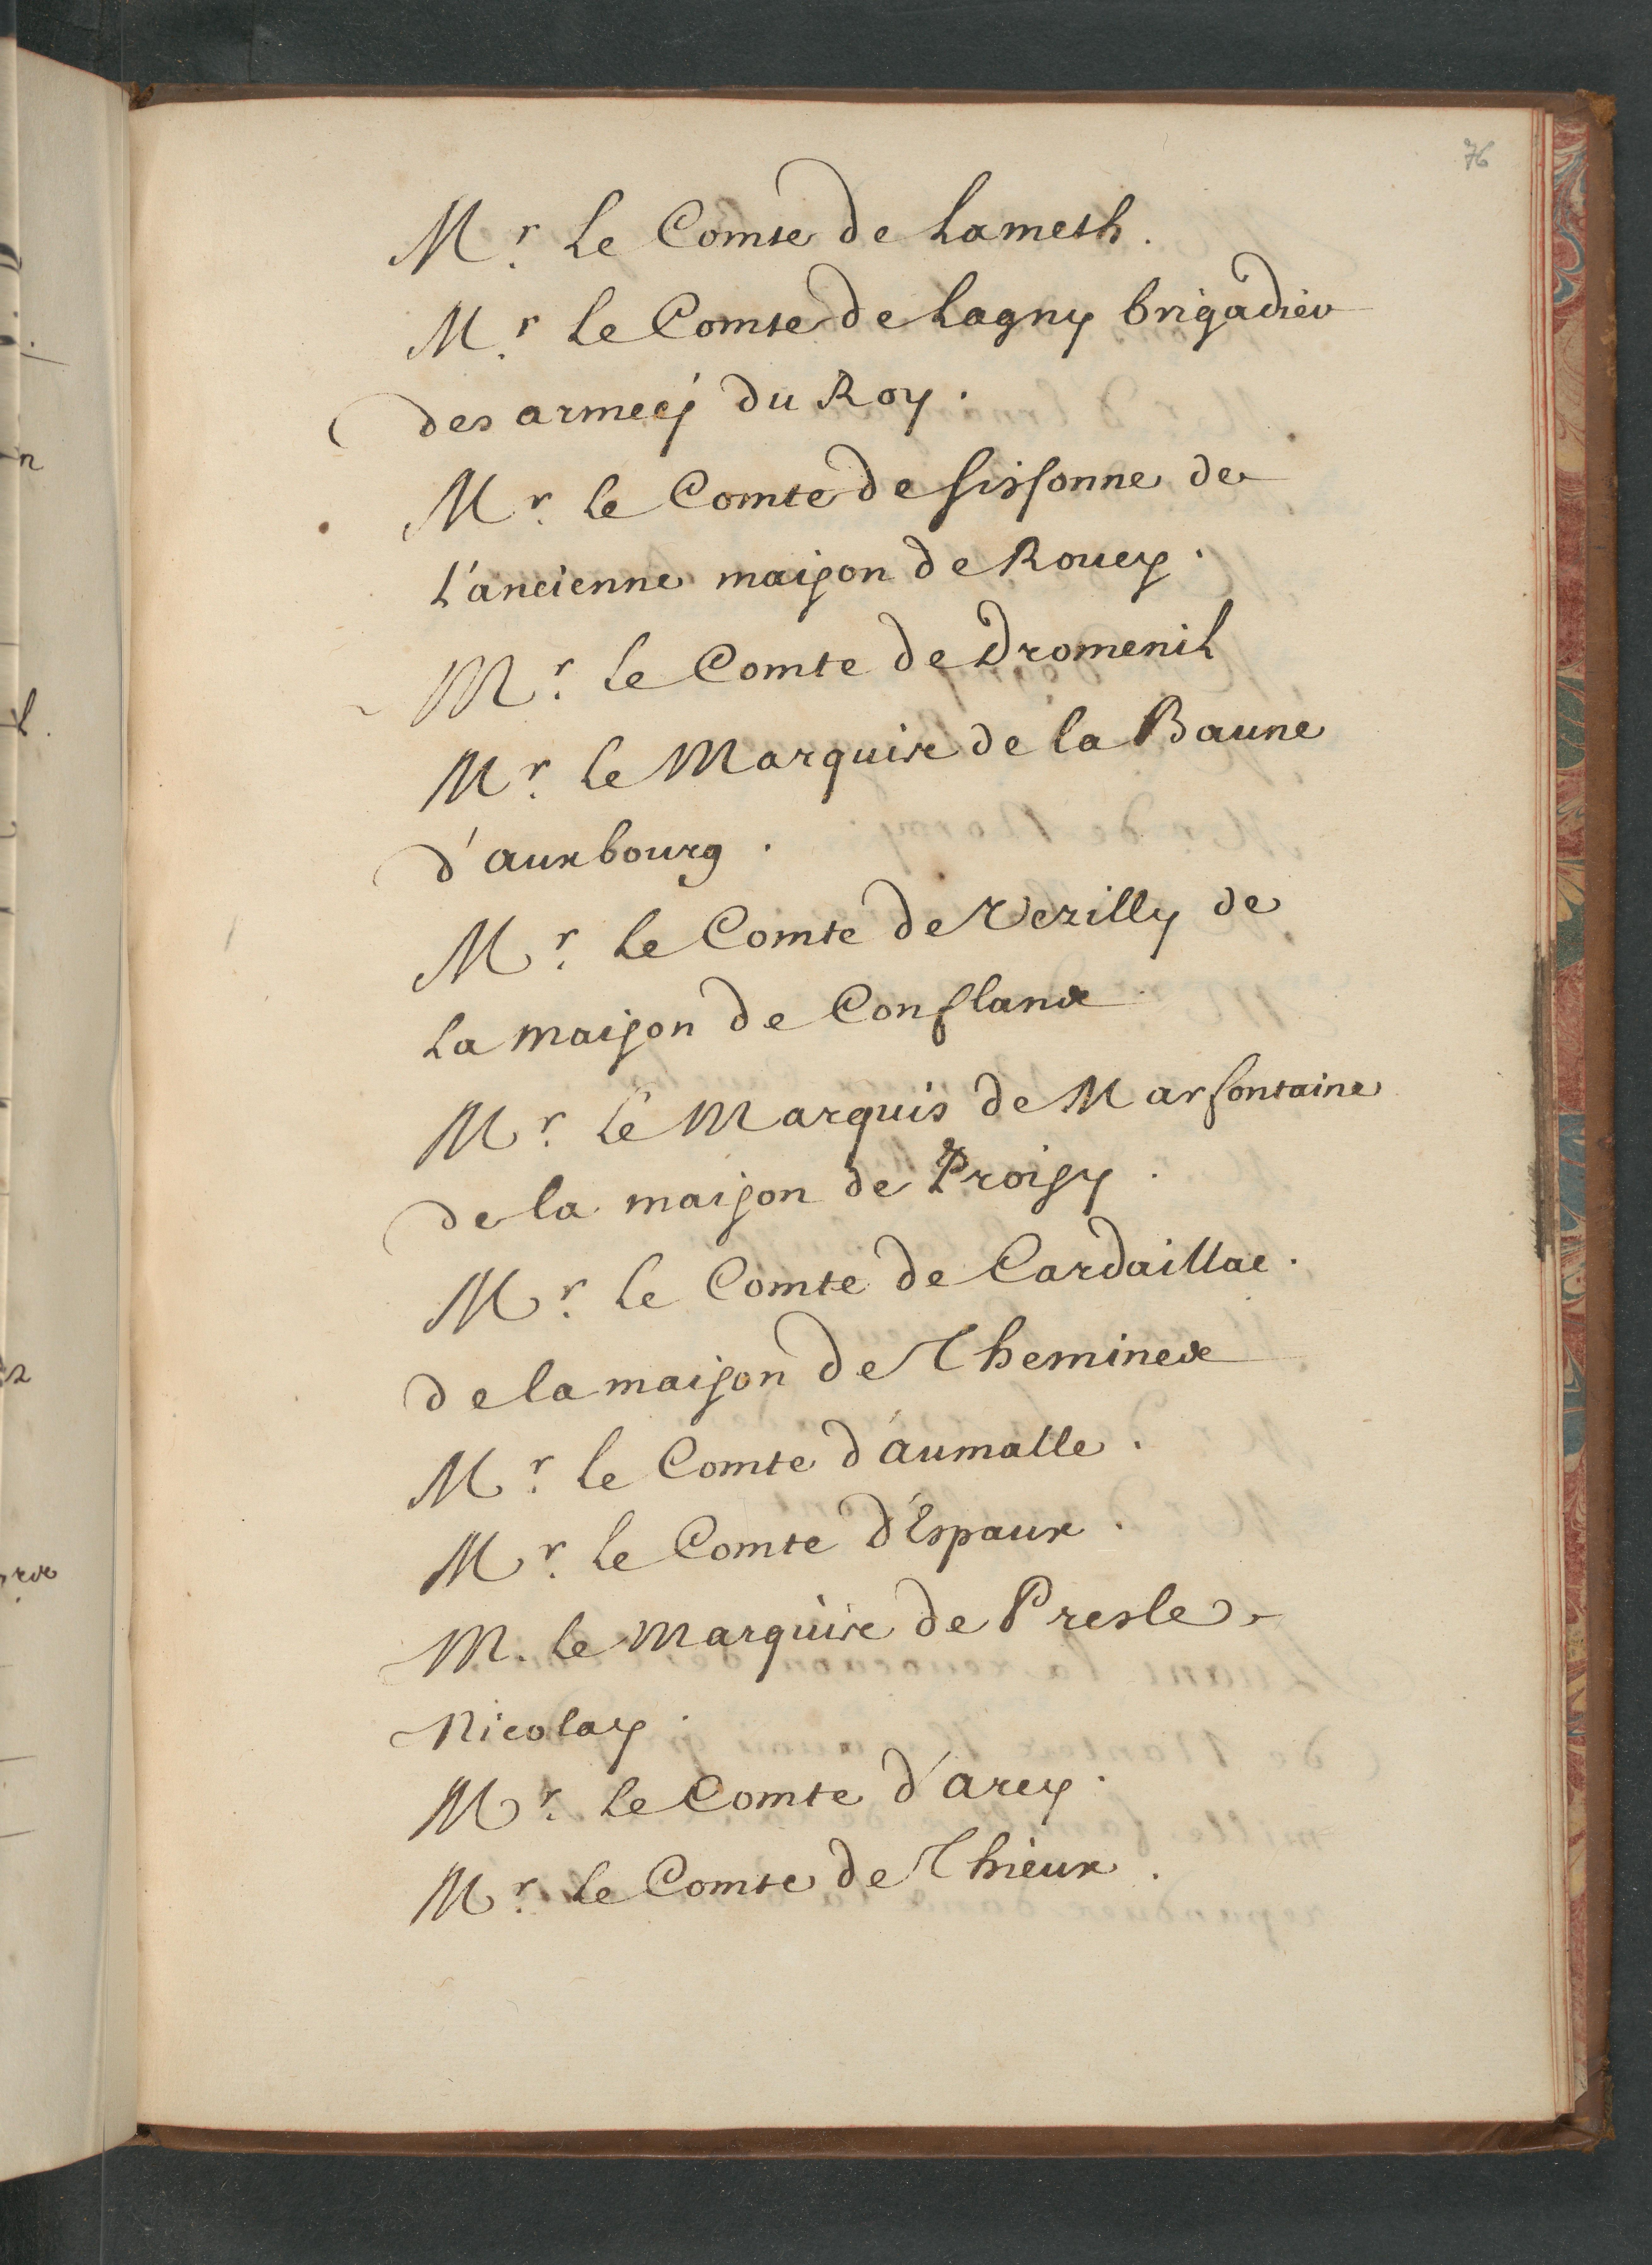 76
Mr. Le Comte de Lameth.
Mr. Le Comte de Lagny brigadier
des armeés du Roy.
Mr. le Comte de sissonne de
L'ancienne maison de Roucy.
Mr. Le Comte de Dromenil
Mr. Le Marquis de la Baune
d'auxbourg.
Mr. Le Comte de Vezilly de
La maison de Conflans
Mr. Le Marquis de Marfontaine
de la maison de Proisy.
Mr. Le Comte de Cardaillac.
de la maison de Themines
Mr. le Comte d'aumalle.
Mr. Le Comte d'Espaux.
M. Le Marquis de Presle
Nicolay.
Mr. Le Comte d'arcy.
Mr. Le Comte de Thieux.